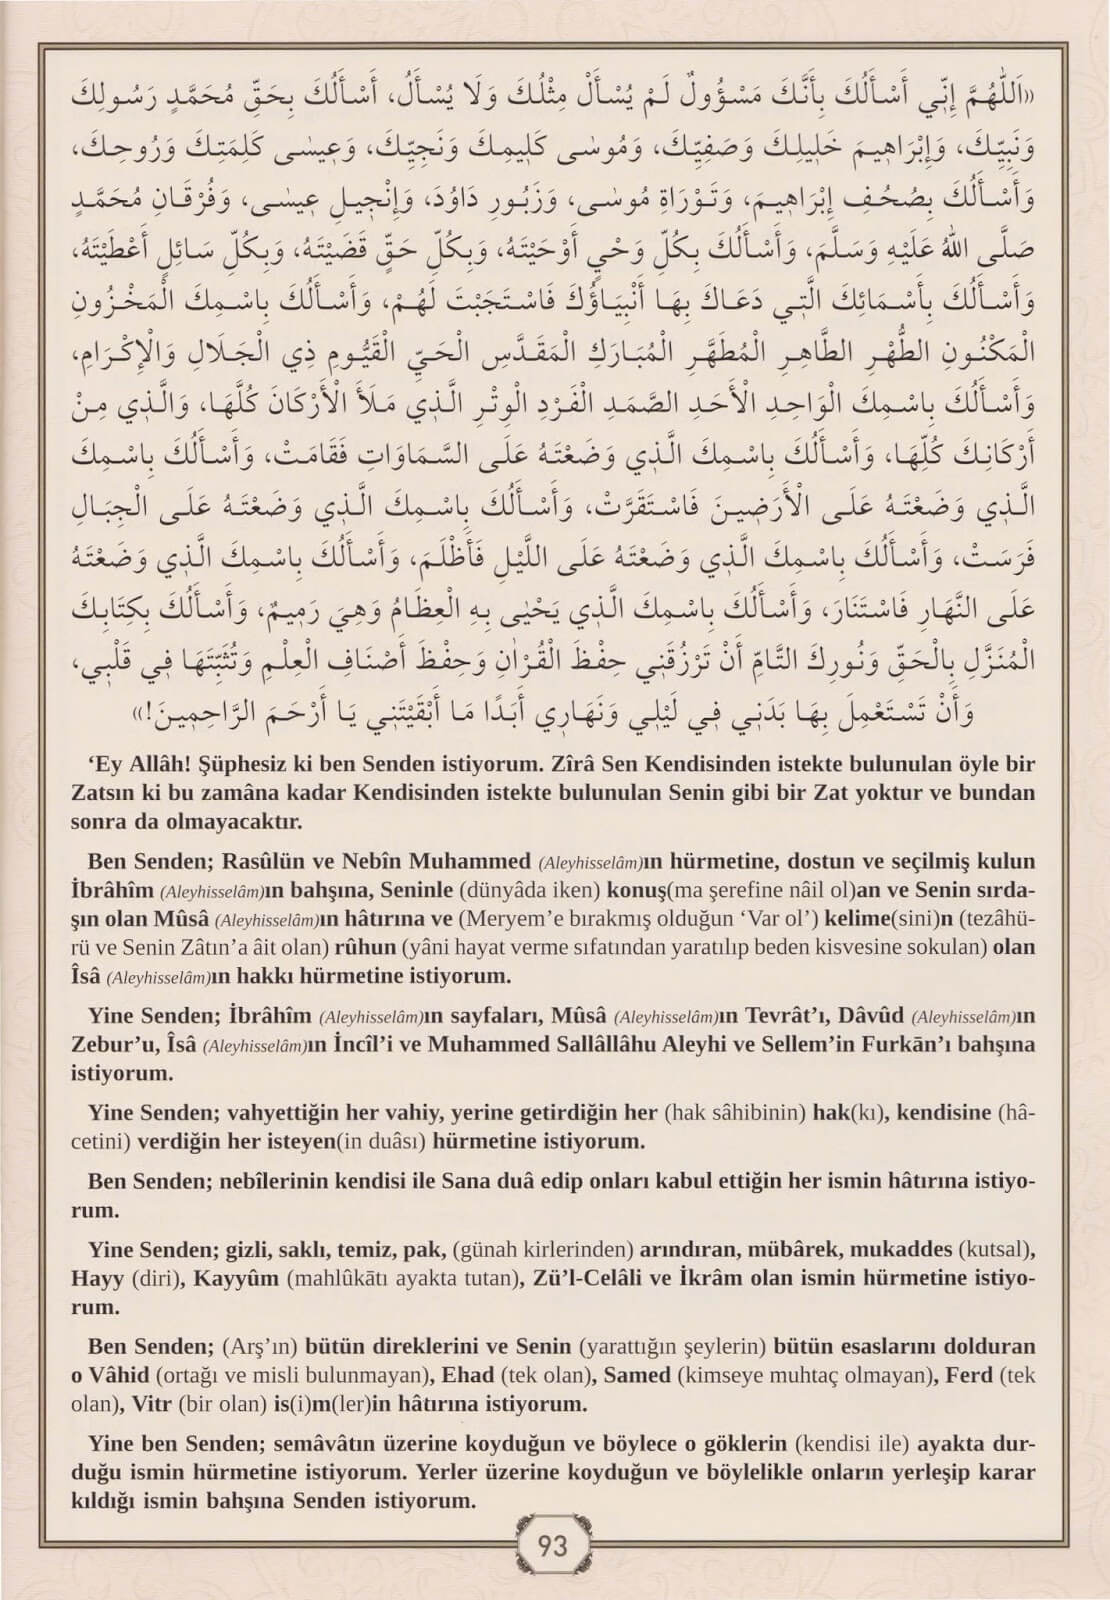 «اَللّٰهُمَّ إِنِّي أَسْأَلُكَ بِأَنَّكَ مَسْؤُولٌ لَمْ يُسْأَلْ مِثْلُكَ وَلَا يُسْأَلُ، أَسْأَلُكَ بِحَقِّ مُحَمَّدٍ رَسُولِكَ
وَنَبِيِّكَ، وَإِبْرَاهِيمَ خَلِيلِكَ وَصَفِيِّكَ، وَمُوسٰى كَلِيمِكَ وَنَجِيِّكَ، وَعِيسٰى كَلِمَتِكَ وَرُوحِكَ،
وَأَسْأَلُكَ بِصُحُفِ إِبْرَاهِيمَ، وَتَوْرَاةِ مُوسٰى، وَزَبُورِ دَاوُدَ، وَإِنْجِيلِ عِيسٰى، وَفُرْقَانِ مُحَمَّدٍ
صَلَّى اللهُ عَلَيْهِ وَسَلَّمَ، وَأَسْأَلُكَ بِكُلِّ وَحْيٍ أَوْحَيْتَهُ، وَبِكُلِّ حَقٍّ قَضَيْتَهُ، وَبِكُلِّ سَائِلٍ أَعْطَيْتَهُ،
وَأَسْأَلُكَ بِأَسْمَائِكَ الَّتِي دَعَاكَ بِهَا أَنْبِيَاؤُكَ فَاسْتَجَبْتَ لَهُمْ، وَأَسْأَلُكَ بِاسْمِكَ الْمَخْزُونِ
الْمَكْنُونِ الطُّهْرِ الطَّاهِرِ الْمُطَهَّرِ الْمُبَارَكِ الْمُقَدَّسِ الْحَيِّ الْقَيُّومِ ذِي الْجَلَالِ وَالْإِكْرَامِ،
وَأَسْأَلُكَ بِاسْمِكَ الْوَاحِدِ الْأَحَدِ الصَّمَدِ الْفَرْدِ الْوِتْرِ الَّذِي مَلَأَ الْأَرْكَانَ كُلَّهَا، وَالَّذِي مِنْ
أَرْكَانِكَ كُلِّهَا، وَأَسْأَلُكَ بِاسْمِكَ الَّذِي وَضَعْتَهُ عَلَى السَّمَاوَاتِ فَقَامَتْ، وَأَسْأَلُكَ بِاسْمِكَ
الَّذِي وَضَعْتَهُ عَلَى الْأَرَضِينَ فَاسْتَقَرَّتْ، وَأَسْأَلُكَ بِاسْمِكَ الَّذِي وَضَعْتَهُ عَلَى الْجِبَالِ
فَرَسَتْ، وَأَسْأَلُكَ بِاسْمِكَ الَّذِي وَضَعْتَهُ عَلَى اللَّيْلِ فَأَظْلَمَ، وَأَسْأَلُكَ بِاسْمِكَ الَّذِي وَضَعْتَهُ
عَلَى النَّهَارِ فَاسْتَنَارَ، وَأَسْأَلُكَ بِاسْمِكَ الَّذِي يَحْيٰى بِهِ الْعِظَامُ وَهِيَ رَمِيمٌ، وَأَسْأَلُكَ بِكِتَابِكَ
الْمُنَزَّلِ بِالْحَقِّ وَنُورِكَ التَّامِّ أَنْ تَرْزُقَنِي حِفْظَ الْقُرْاٰنِ وَحِفْظَ أَصْنَافِ الْعِلْمِ وَتُثَبِّتَهَا فِي قَلْبِي،
وَأَنْ تَسْتَعْمِلَ بِهَا بَدَنِي فِي لَيْلِي وَنَهَارِي أَبَدًا مَا أَبْقَيْتَنِي يَا أَرْحَمَ الرَّاحِمِينَ!»
‘Ey Allâh! Şüphesiz ki ben Senden istiyorum. Zîrâ Sen Kendisinden istekte bulunulan öyle bir
Zatsın ki bu zamâna kadar Kendisinden istekte bulunulan Senin gibi bir Zat yoktur ve bundan
sonra da olmayacaktır.
Ben Senden; Rasûlün ve Nebîn Muhammed (Aleyhisselâm)ın hürmetine, dostun ve seçilmiş kulun
İbrâhîm (Aleyhisselâm)ın bahşına, Seninle (dünyâda iken) konuş(ma şerefine nâil ol)an ve Senin sırda-
şın olan Mûsâ (Aleyhisselâm)ın hâtırına ve (Meryem’e bırakmış olduğun ‘Var ol’) kelime(sini)n (tezâhü-
rü ve Senin Zâtın’a âit olan) rûhun (yâni hayat verme sıfatından yaratılıp beden kisvesine sokulan) olan
Îsâ (Aleyhisselâm)ın hakkı hürmetine istiyorum.
Yine Senden; İbrâhîm (Aleyhisselâm)ın sayfaları, Mûsâ (Aleyhisselâm)ın Tevrât’ı, Dâvûd (Aleyhisselâm)ın
Zebur’u, Îsâ (Aleyhisselâm)ın İncîl’i ve Muhammed Sallâllâhu Aleyhi ve Sellem’in Furkān’ı bahşına
istiyorum.
Yine Senden; vahyettiğin her vahiy, yerine getirdiğin her (hak sâhibinin) hak(kı), kendisine (hâ-
cetini) verdiğin her isteyen(in duâsı) hürmetine istiyorum.
Ben Senden; nebîlerinin kendisi ile Sana duâ edip onları kabul ettiğin her ismin hâtırına istiyo-
rum.
Yine Senden; gizli, saklı, temiz, pak, (günah kirlerinden) arındıran, mübârek, mukaddes (kutsal),
Hayy (diri), Kayyûm (mahlûkātı ayakta tutan), Zü’l-Celâli ve İkrâm olan ismin hürmetine istiyo-
rum.
Ben Senden; (Arş’ın) bütün direklerini ve Senin (yarattığın şeylerin) bütün esaslarını dolduran
o Vâhid (ortağı ve misli bulunmayan), Ehad (tek olan), Samed (kimseye muhtaç olmayan), Ferd (tek
olan), Vitr (bir olan) is(i)m(ler)in hâtırına istiyorum.
Yine ben Senden; semâvâtın üzerine koyduğun ve böylece o göklerin (kendisi ile) ayakta dur-
duğu ismin hürmetine istiyorum. Yerler üzerine koyduğun ve böylelikle onların yerleşip karar
kıldığı ismin bahşına Senden istiyorum.
93